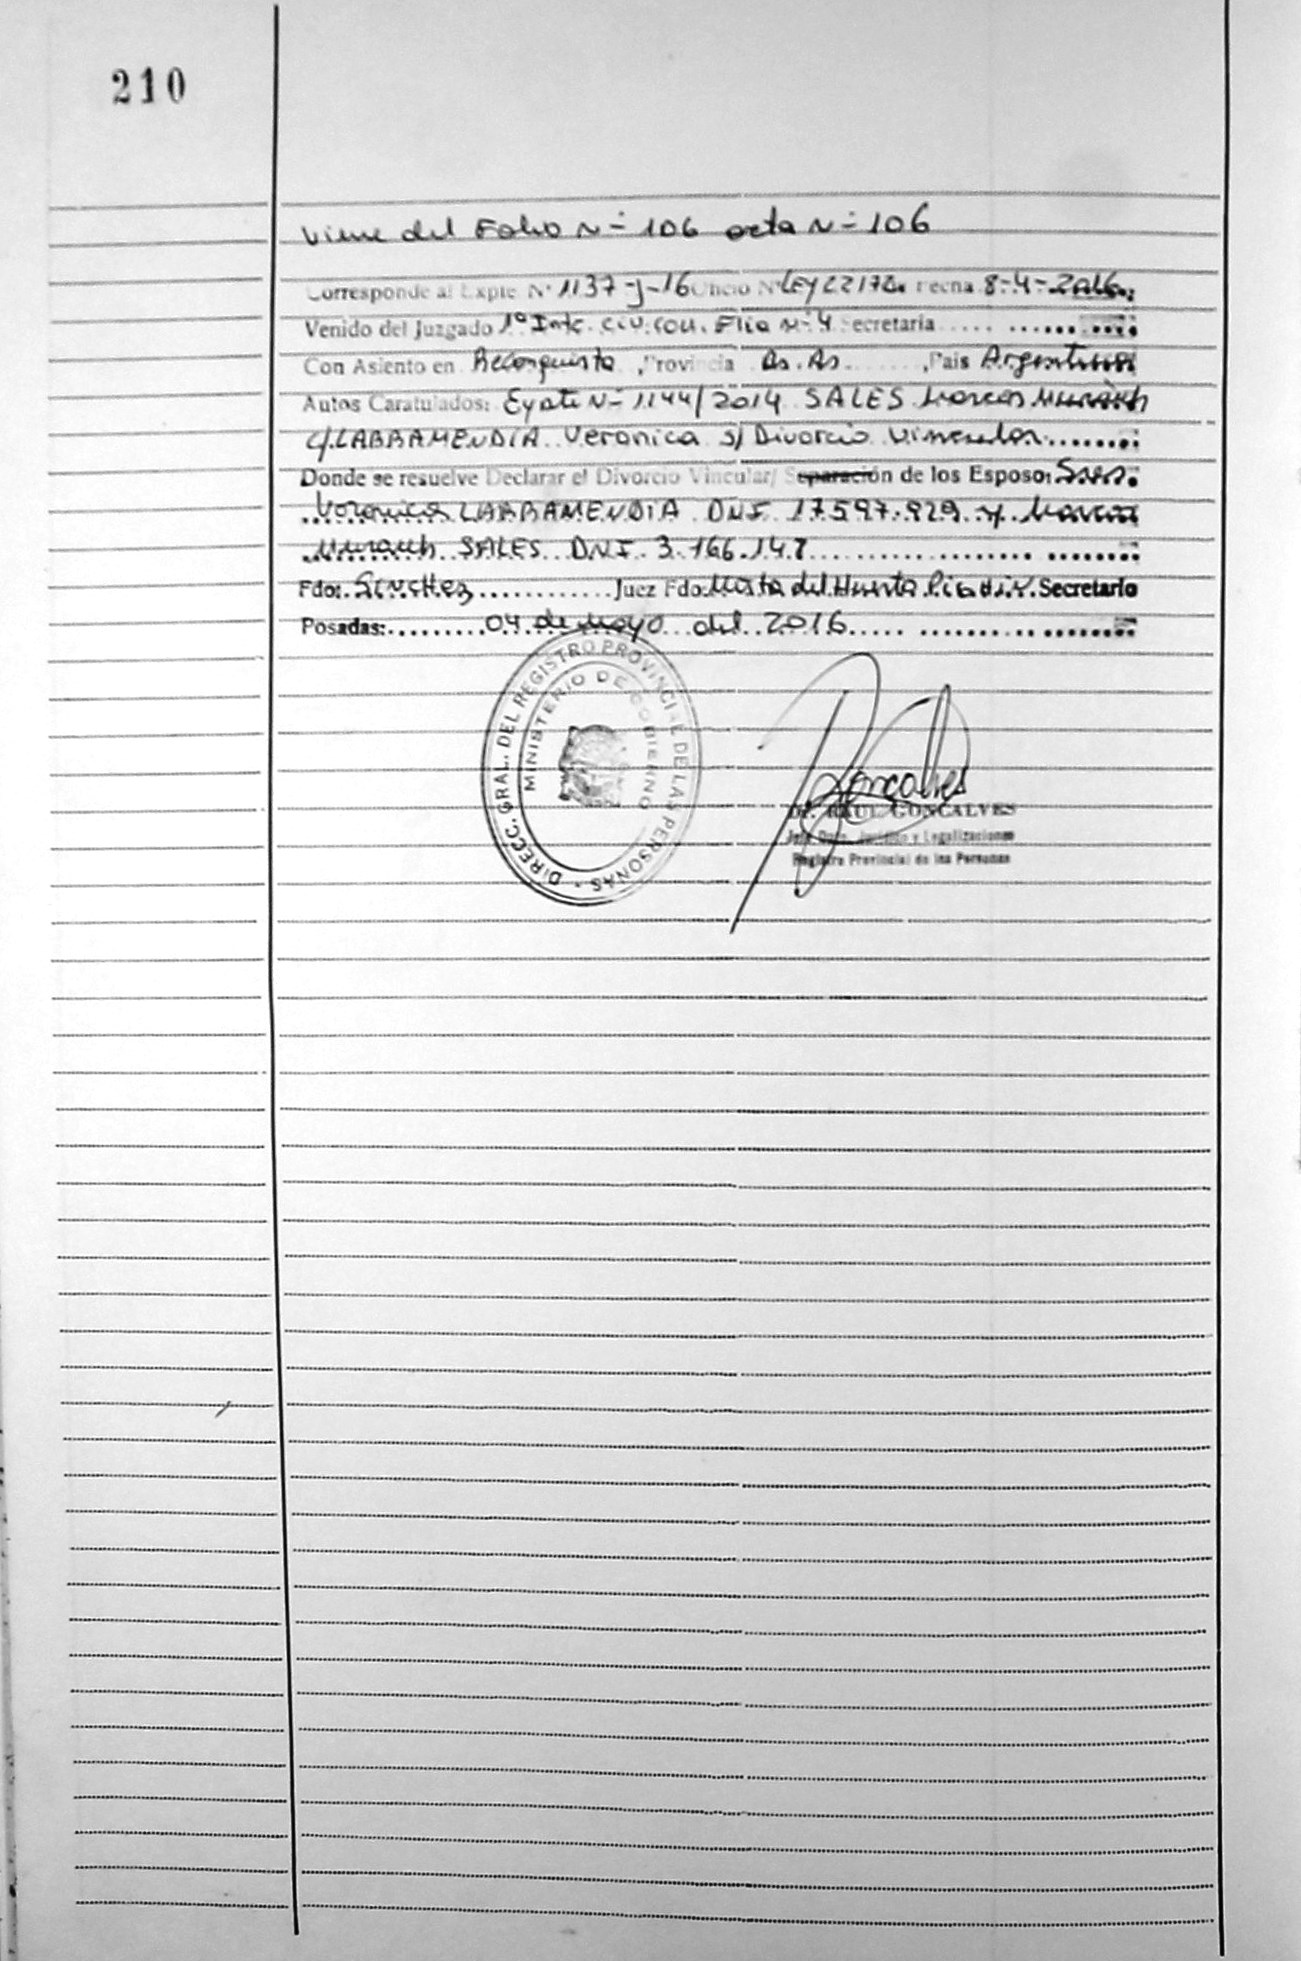 210
Viene del Folio N° 106 acta N° 106
Corresponde al Expte N° 1137-J-16 Oficio N° LEY 22172 Fecha 8-4-2016
Venido del Juzgado 1° Civ. Com. Flia N° 4 Secretaria
Con Asiento en Reconquista, Provincia Bs. As., Pais Argentina
Autos Caratulados: Expte N° 1144/2014 SALES Marcos
C/LARRAMENDIA Veronica S/ Divorcio Vincular
Donde se resuelve Declarar el Divorcio Vincular/ Separación de los Esposo: Sres.
Veronica LARRAMENDIA DNI 17.597.929 y Marcos
SALES DNI 3.166.147
Fdo: Sanchez Juez Fdo: del Huerto Secretario
Posadas: 04 de Mayo del 2016
DIRECC. GRAL. DEL REGISTRO PROVINCIAL DE LAS PERSONAS
MINISTERIO DE GOBIERNO
Goncalves
Dr. RAUL GONCALVES
Jefe Dpto. Jurídico y Legalizaciones
Registro Provincial de las Personas